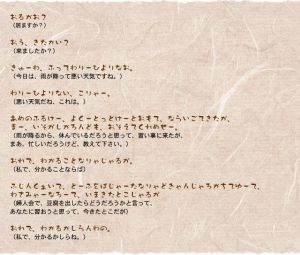 おろかお？
（居ますか？）
おう、きたかい？
（来ましたか？）
きゅーわ、ふってわりーひよりなお。
（今日は、雨が降って悪い天気ですね。）
わりーひよりない、こりゃー。
（悪い天気だね、これは。）
あめのふるけー、よくーとっどけーとおもて、ならいごてきたが、
まー、いそがしかろんども、おそうてくわめせー。
（雨が降るから、休んでいるだろうと思って、習い事に来たが、
まあ、忙しいだろうけど、教えて下さい。）
おれで、わかることなりゃじゃろが。
（私で、分かることならば）
ふじんくゎいで、とーふをばしゃーたなりゃどぎゃんじゃろかすてゆーて、
わたやーなろーて、いまきたとこじゃが
（婦人会で、豆腐を出したらどうだろうかと言って、
あなたに習おうと思って、今きたとこだが）
おれで、わかるかしらんわの。
（私で、分かるかしらね。）